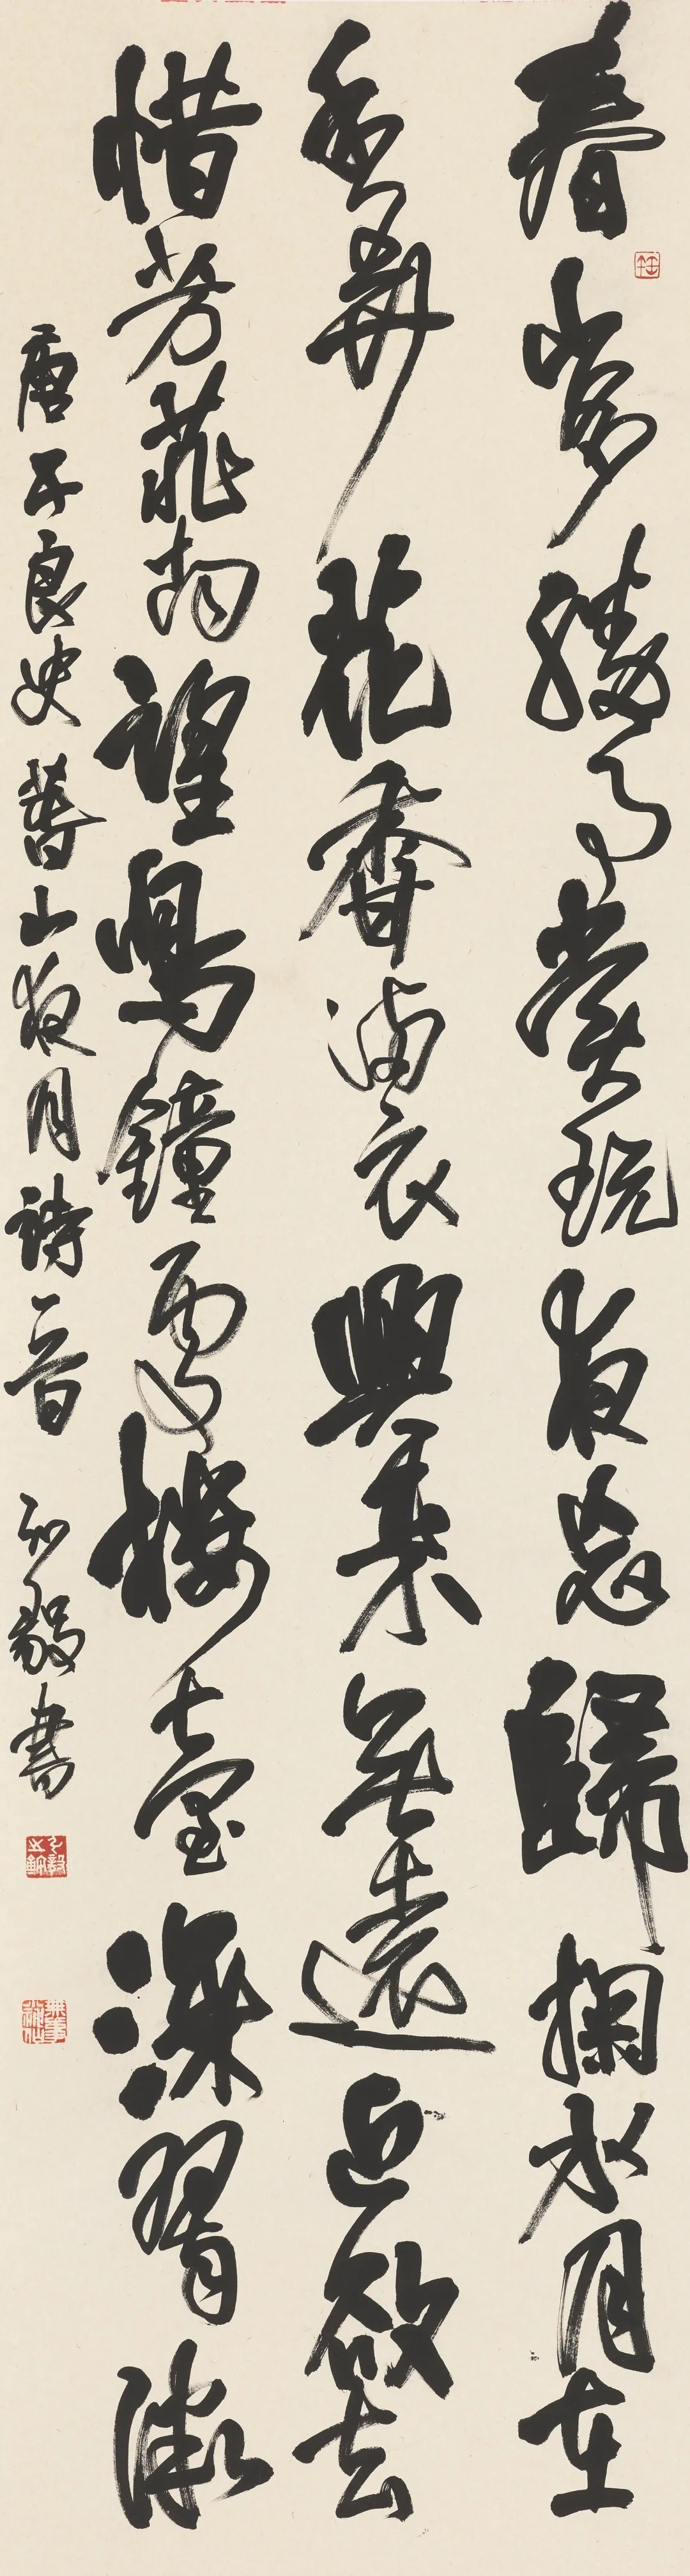 春山多勝事賞玩夜忘歸掬水月在
手弄花香滿衣興來無遠近欲去
惜芳菲南望鳴鐘處樓臺深翠微
唐于良史春山夜月詩一首 弘毅書